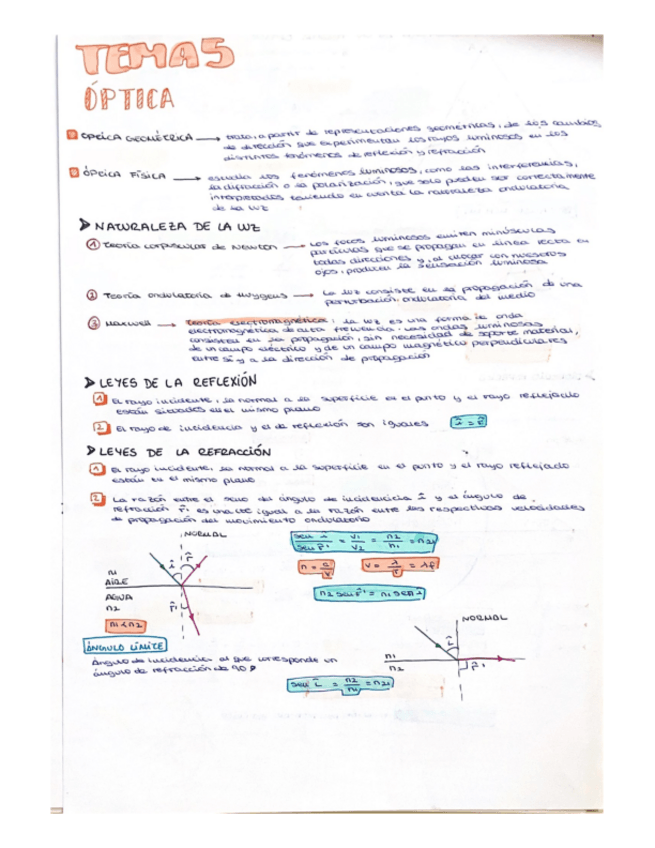 TEMA 5
ÓPTICA
ÓPTICA GEOMÉTRICA → trata, a partir de representaciones geométricas, de los cambios
de dirección que experimentan los rayos luminosos en los
distintos fenómenos de reflexión y refracción
ÓPTICA FÍSICA → estudia los fenómenos luminosos, como las interferencias,
la difracción o la polarización, que solo pueden ser correctamente
interpretados teniendo en cuenta la naturaleza ondulatoria
de la luz
➤ NATURALEZA DE LA LUZ
① Teoría corpuscular de Newton → Los focos luminosos emiten minúsculas
partículas que se propagan en línea recta en
todas direcciones y, al chocar con nuestros
ojos, producen la sensación luminosa
② Teoría ondulatoria de Huygens → La luz consiste en la propagación de una
perturbación ondulatoria del medio
③ Maxwell → Teoría electromagnética: la luz es una forma de onda
electromagnética de alta frecuencia. Las ondas luminosas
consisten en la propagación, sin necesidad de soporte material,
de un campo eléctrico y de un campo magnético perpendiculares
entre sí y a la dirección de propagación
➤ LEYES DE LA REFLEXIÓN
1 El rayo incidente, la normal a la superficie en el punto y el rayo reflejado
están situados en el mismo plano
2 El rayo de incidencia y el de reflexión son iguales î = r̂
➤ LEYES DE LA REFRACCIÓN
1 El rayo incidente, la normal a la superficie en el punto y el rayo reflejado
están en el mismo plano
2 La razón entre el seno del ángulo de incidencia î y el ángulo de
refracción r̂' es una cte igual a la razón entre las respectivas velocidades
de propagación del movimiento ondulatorio
NORMAL
î r̂
n1
AIRE
AGUA
n2
r̂'
n1 < n2
sen î / sen r̂' = v1 / v2 = n2 / n1 = n21
n = c / v
v = λ / T = λf
n2 sen r̂' = n1 sen î
ÁNGULO LÍMITE
Ángulo de incidencia al que corresponde un
ángulo de refracción de 90º
sen L̂ = n2 / n1 = n21
NORMAL
L̂
n1
n2
r̂'